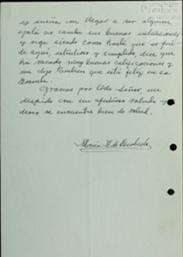 su sueño, en llegar a ser alguien,
ojalá no cambie sus buenas intenciones
y siga siendo como hasta que se fué
de aquí, estudioso y cumplido, dice que
ha sacado muy buenas calificaciones y
me dijo también que está feliz en su
Escuela.
Oramos por Uds Señor, me
despido con un afectuoso saludo y
deseo se encuentre bien de salud.